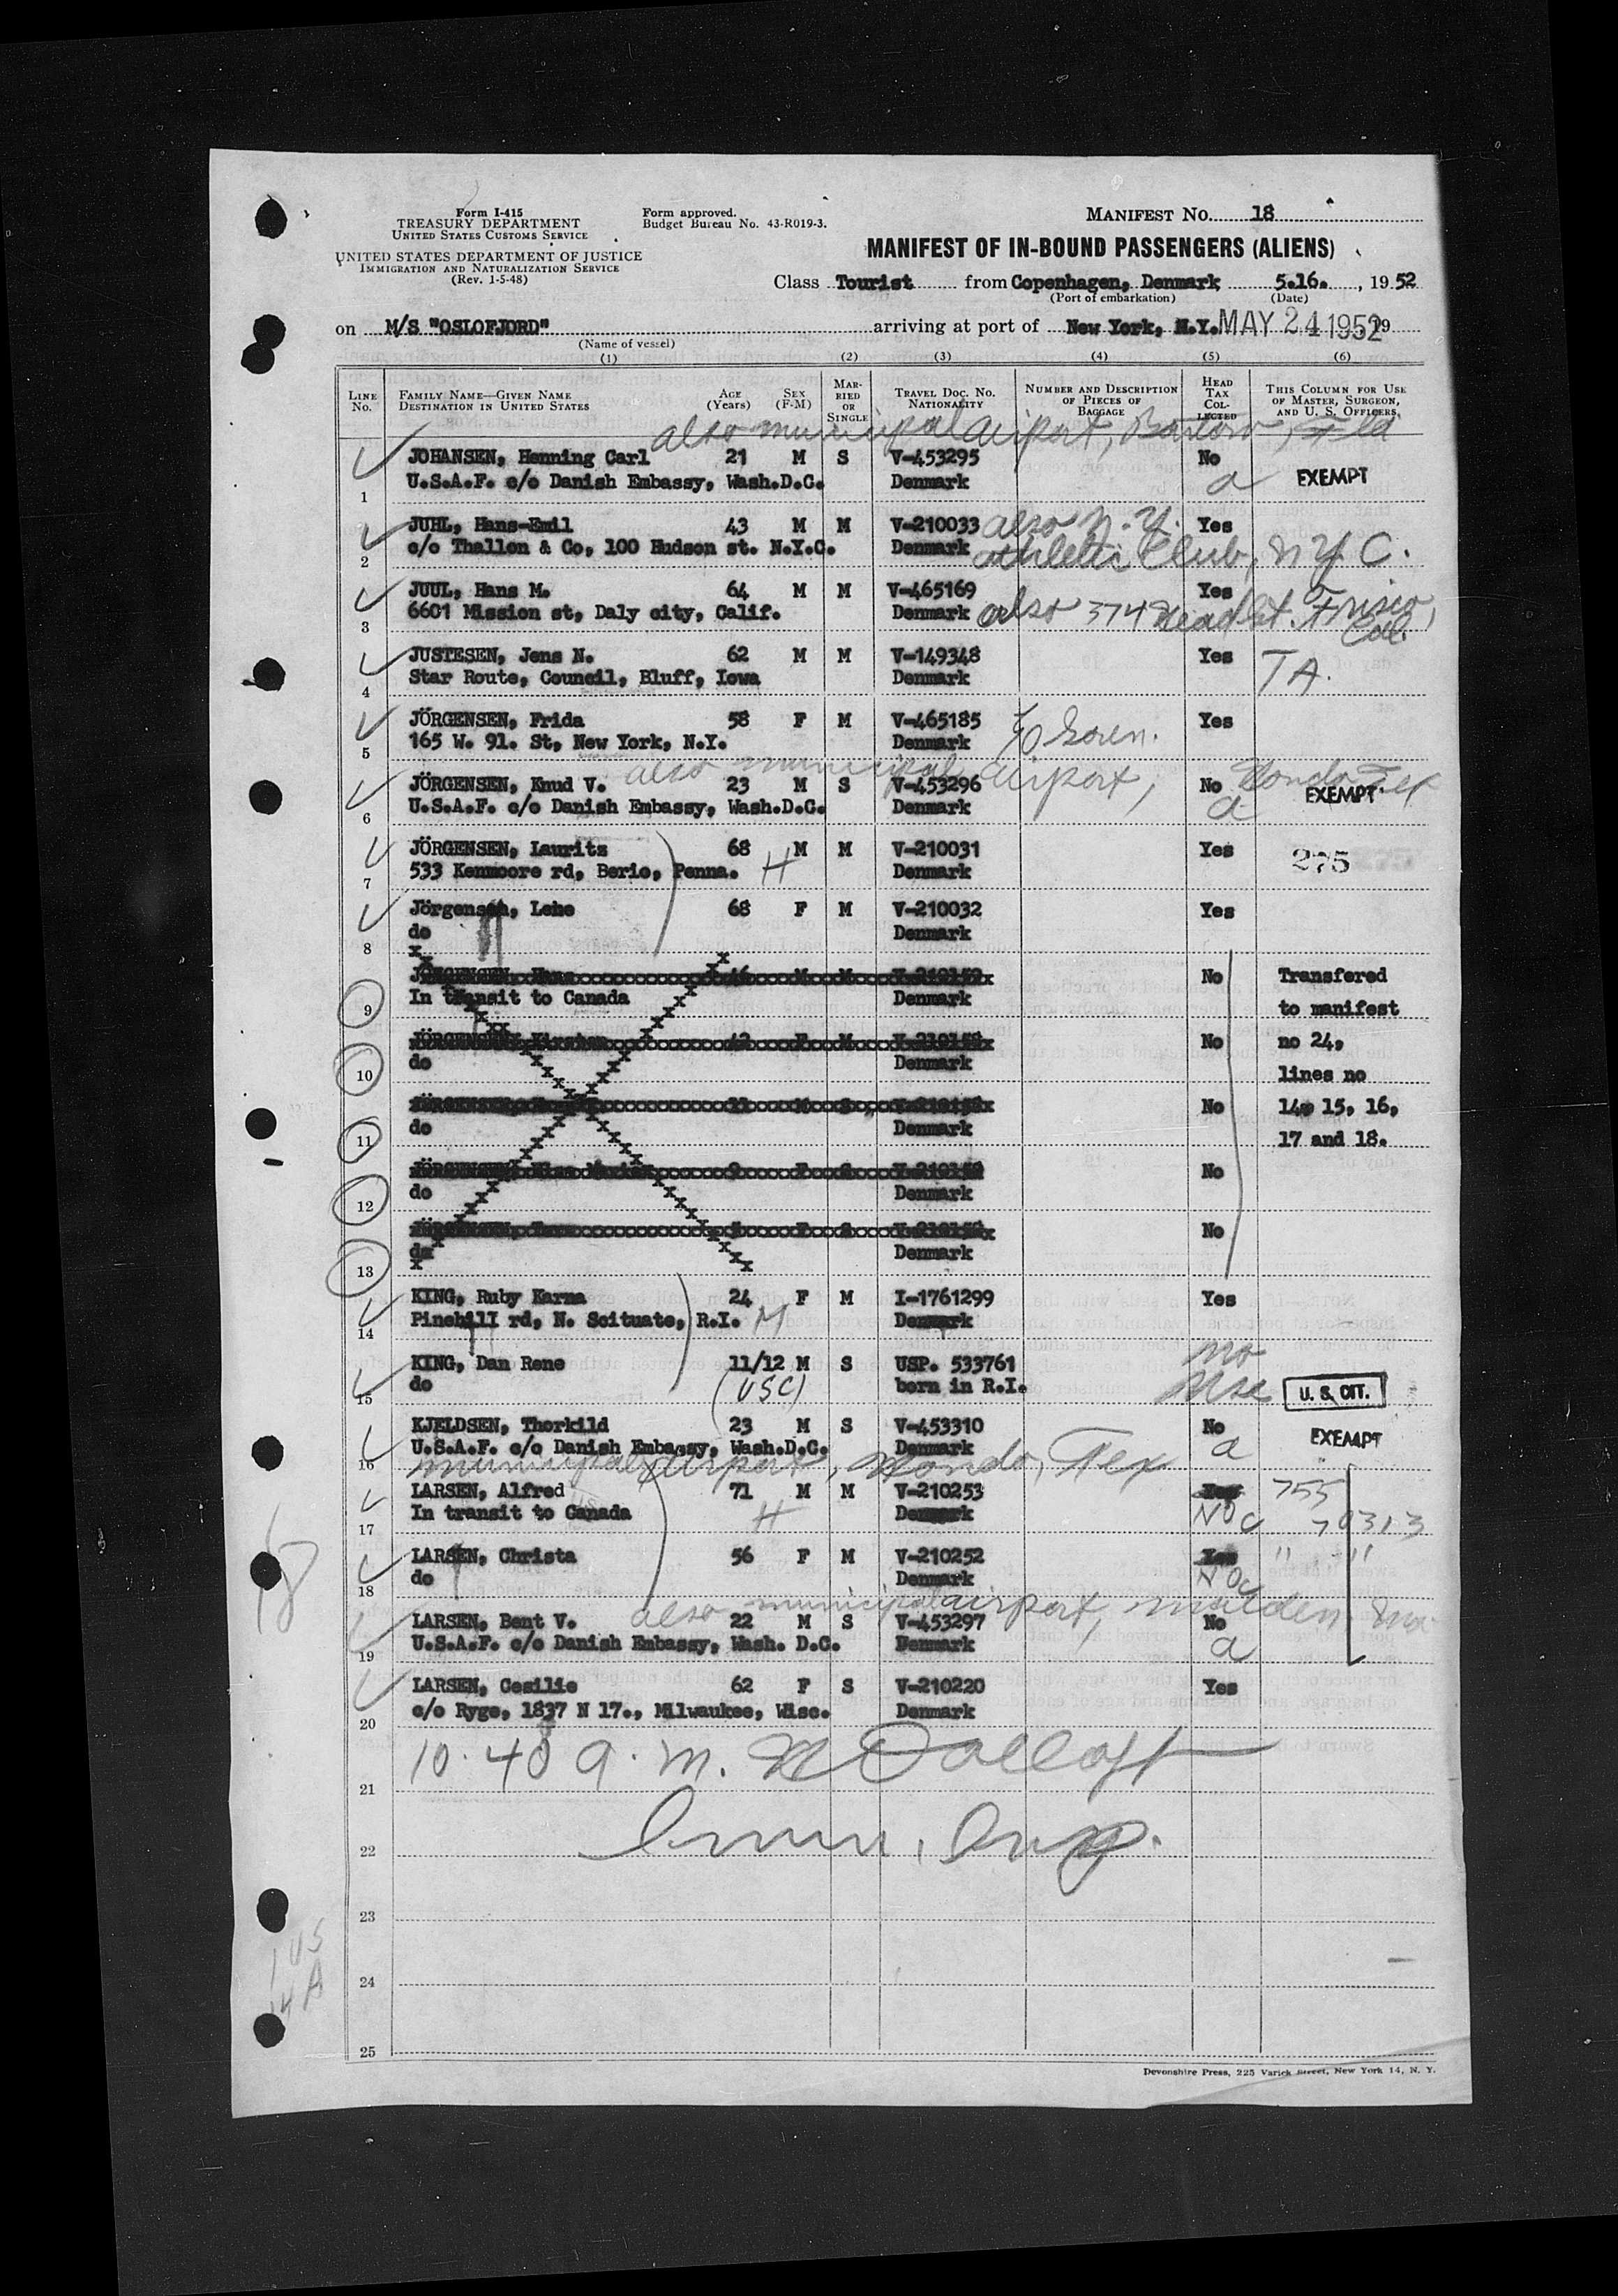 Form I-415
TREASURY DEPARTMENT
UNITED STATES CUSTOMS SERVICE
UNITED STATES DEPARTMENT OF JUSTICE
IMMIGRATION AND NATURALIZATION SERVICE
(Rev. 1-5-48)
Form approved.
Budget Bureau No. 43-R019-3.
MANIFEST NO. 18
MANIFEST OF IN-BOUND PASSENGERS (ALIENS)
Class Tourist from Copenhagen, Denmark 5.16., 1952
(Port of embarkation) (Date)
on M/S "OSLOFJORD" arriving at port of New York, N.Y. MAY 24 1952, 19
(Name of vessel)
(1) (2) (3) (4) (5) (6)
LINE NO. FAMILY NAME—GIVEN NAME DESTINATION IN UNITED STATES AGE (Years) SEX (F-M) MARRIED OR SINGLE TRAVEL DOC. NO. NATIONALITY NUMBER AND DESCRIPTION OF PIECES OF BAGGAGE HEAD TAX COLLECTED THIS COLUMN FOR USE OF MASTER, SURGEON, AND U. S. OFFICERS
also municipal airport, Bartow, Fla
JOHANSEN, Henning Carl 21 M S V-453295 No
1 U.S.A.F. c/o Danish Embassy, Wash.D.C. Denmark a EXEMPT
JUHL, Hans-Emil 43 M M V-210033 also N.Y. Yes
2 c/o Thallon & Co, 100 Hudson st. N.Y.C. Denmark Athletic Club, N Y C.
JUUL, Hans M. 64 M M V-465169 Yes
3 6601 Mission st, Daly city, Calif. Denmark also 374 Head St. Frisco, Cal.
JUSTESEN, Jens N. 62 M M V-149348 Yes
4 Star Route, Council, Bluff, Iowa Denmark TA.
JÖRGENSEN, Frida 58 F M V-465185 Yes
5 165 W. 91. St, New York, N.Y. Denmark
also municipal airport, Hondo Tex
JÖRGENSEN, Knud V. 23 M S V-453296 No
6 U.S.A.F. c/o Danish Embassy, Wash.D.C. Denmark a EXEMPT
JÖRGENSEN, Laurits 68 M M V-210031 Yes 275
7 533 Kenmoore rd, Berio, Penna. H Denmark
Jörgensen, Lehe 68 F M V-210032 Yes
8 do Denmark
JÖRGENSEN, Hans 46 M M V-210152 No Transfered
9 In transit to Canada Denmark to manifest
JÖRGENSEN, Kirsten 42 F M No no 24,
10 do Denmark lines no
JÖRGENSEN, 11 M S No 14, 15, 16,
11 do Denmark 17 and 18.
JÖRGENSEN, 9 F S No
12 do Denmark
JÖRGENSEN, F S No
13 do Denmark
KING, Ruby Karna 24 F M I-1761299 Yes
14 Pinehill rd, N. Scituate, R.I. M Denmark
KING, Dan Rene 11/12 M S USP. 533761 no
15 do (USC) born in R.I. U. S. CIT.
KJELDSEN, Thorkild 23 M S V-453310 No
16 U.S.A.F. c/o Danish Embassy, Wash.D.C. Denmark a EXEMPT
municipal airport, Hondo, Tex
LARSEN, Alfred 71 M M V-210253 Yes 755
17 In transit to Canada H Denmark No c 70313
LARSEN, Christa 56 F M V-210252 Yes " "
18 do Denmark No c
also municipal airport, Malden Mo
LARSEN, Bent V. 22 M S V-453297 No
19 U.S.A.F. c/o Danish Embassy, Wash. D.C. Denmark a
LARSEN, Cesilie 62 F S V-210220 Yes
20 c/o Ryge, 1837 N 17., Milwaukee, Wisc. Denmark
10.48 a.m.
21
22 Immi. Insp.
23
24
25
1 US
14 A
Devonshire Press, 225 Varick Street, New York 14, N. Y.